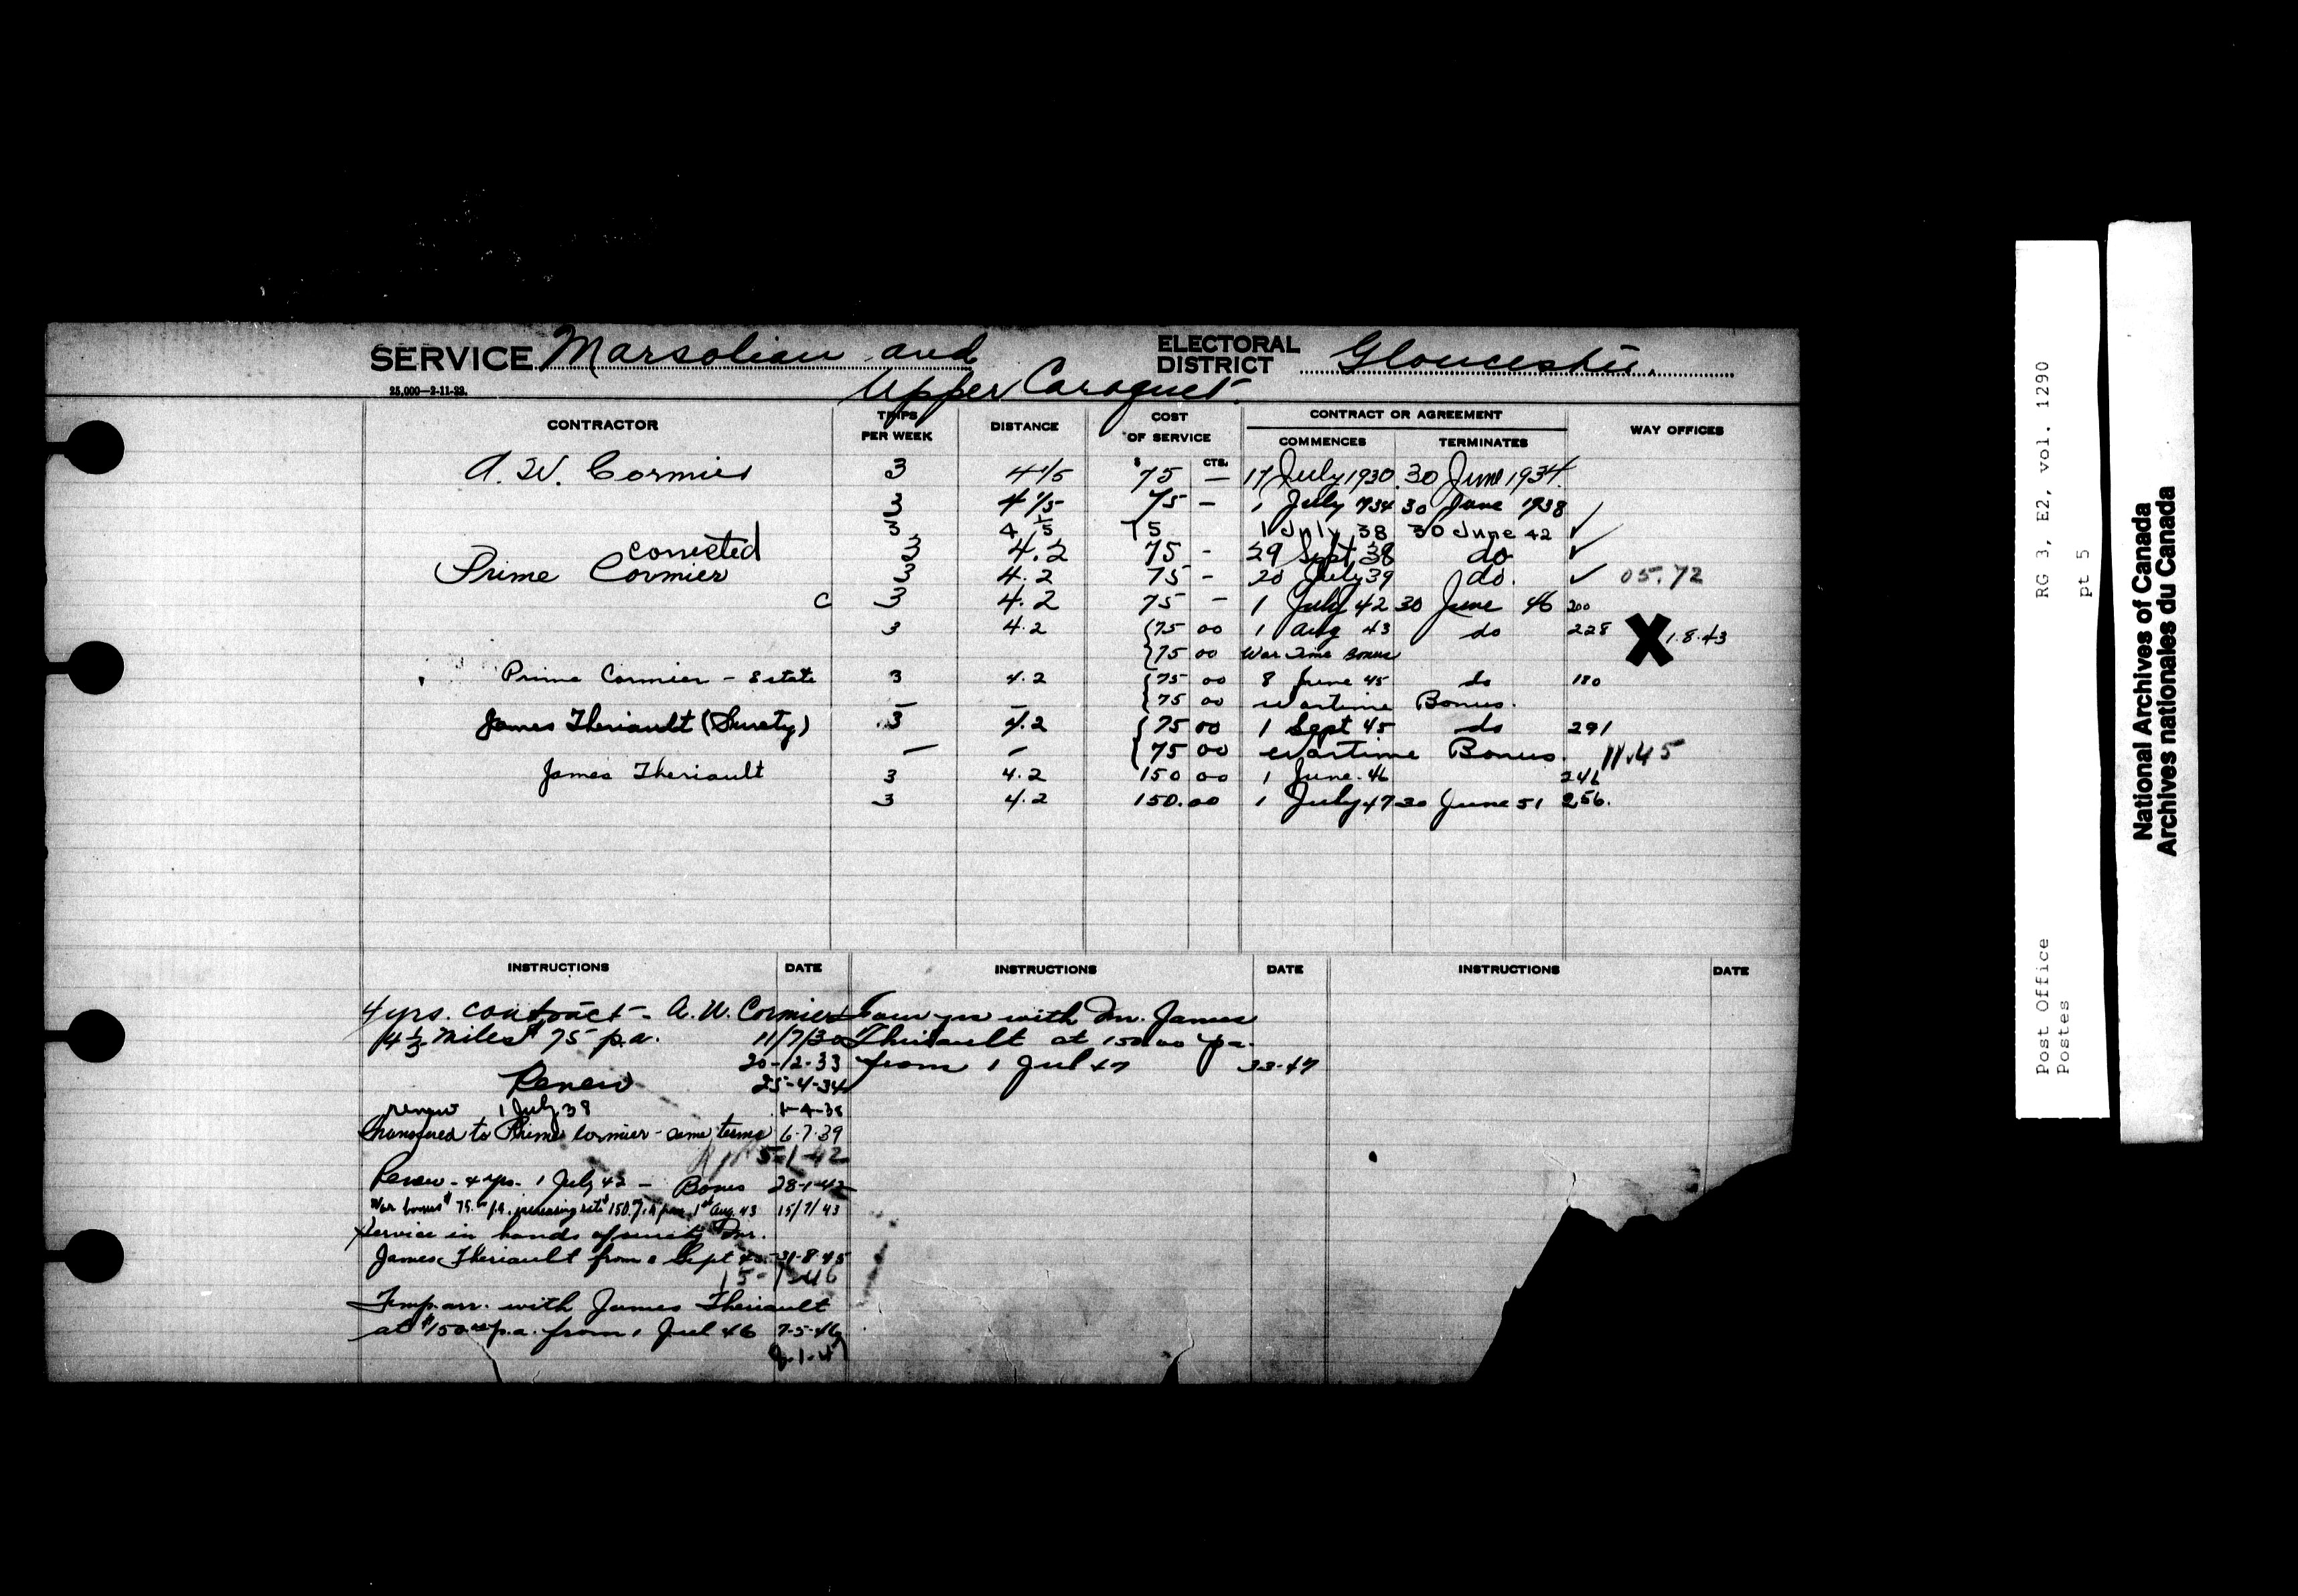 SERVICE Marsolian and
Upper Caraquet.
ELECTORAL DISTRICT Gloucester.
25,000—2-11-23.
CONTRACTOR TRIPS PER WEEK DISTANCE COST OF SERVICE CONTRACT OR AGREEMENT WAY OFFICES
$ CTS. COMMENCES TERMINATES
A. W. Cormier 3 4 1/5 75 — 17 July 1930 30 June 1934
3 4 1/5 75 — 1 July 1934 30 June 1938 ✓
3 4 1/5 75 1 July 38 30 June 42 ✓
corrected 3 4.2 75 - 29 Sept 38 do ✓
Prime Cormier 3 4.2 75 - 20 July 39 do. ✓ 05.72
C 3 4.2 75 - 1 July 42 30 June 46 200
3 4.2 75 00 1 Aug 43 do 228 X 1.8.43
75 00 War Time Bonus
Prime Cormier - Estate 3 4.2 75 00 8 June 45 do 180
— — 75 00 Wartime Bonus.
James Theriault (Surety) 3 4.2 75 00 1 Sept 45 do 291
— — 75 00 Wartime Bonus. 11.45
James Theriault 3 4.2 150 00 1 June. 46
3 4.2 150.00 1 July 47 30 June 51 256.
INSTRUCTIONS DATE INSTRUCTIONS DATE INSTRUCTIONS DATE
4 yrs. contract - A. W. Cormier
4 1/5 miles $75 p.a. 11/7/30
20-12-33
Renew 25-4-34
renew 1 July 38 1-4-38
Transfered to Prime Cormier - same terms 6-7-39
5-1-42
Renew - 4 yrs. 1 July 42 - Bonus 28-1-42
War bonus $75.00 p.a. increasing rate $150. p.a. from 1st Aug. 43 15/7/43
Service in hands of surety Mr.
James Theriault from 1 Sept 45 31-8-45
15-1-46
Temp. arr. with James Theriault
at $150.00 p.a. from 1 Jul 46 7-5-46
8-1-47
Four yrs with Mr. James
Theriault at 150.00 pa.
from 1 Jul 47
Post Office RG 3, E2, vol. 1290
Postes pt 5
National Archives of Canada
Archives nationales du Canada